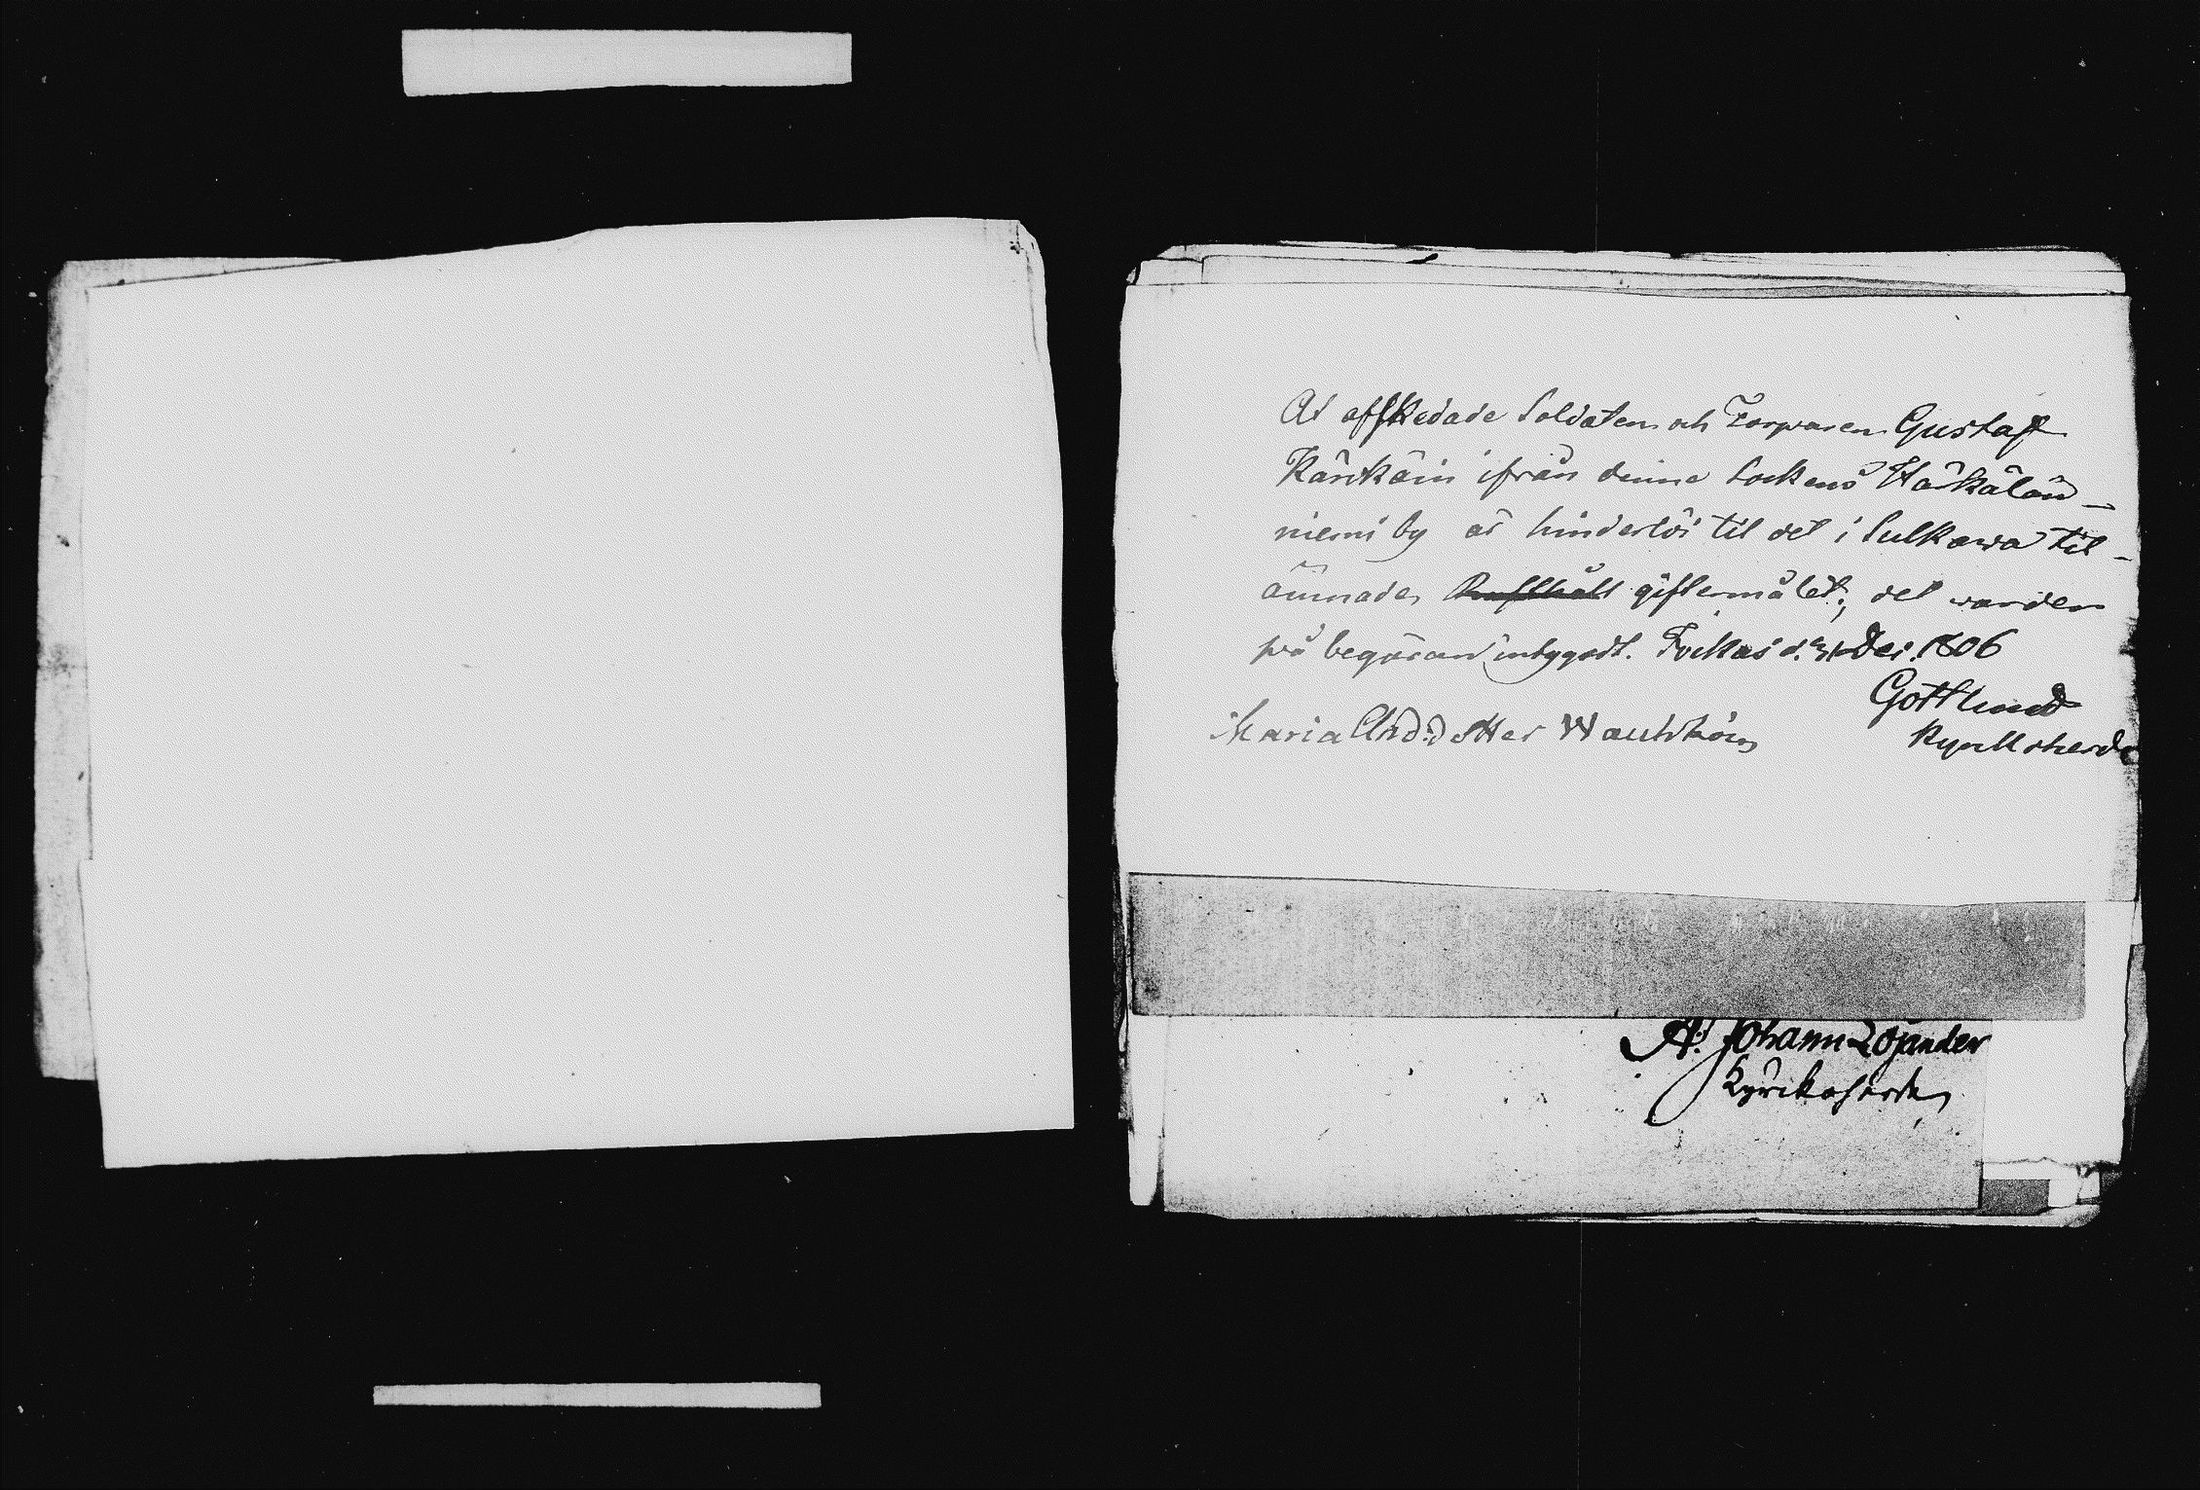 At affskedade Soldaten och Torparen Gustaf
Kärkäin ifrån denne Sockens Härkälän-
niemi by är hinderlös til det i Sulkawa til-
ämnade giftermålet; det warder
på begäran intygadt. Jockas d. 31 Dec. 1806
Gottlund
Kyrckoherde
Maria And:dotter Wauhkoin
A: Johann Lojander
Kyrckoherde